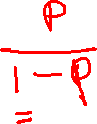 P
1 - P
=